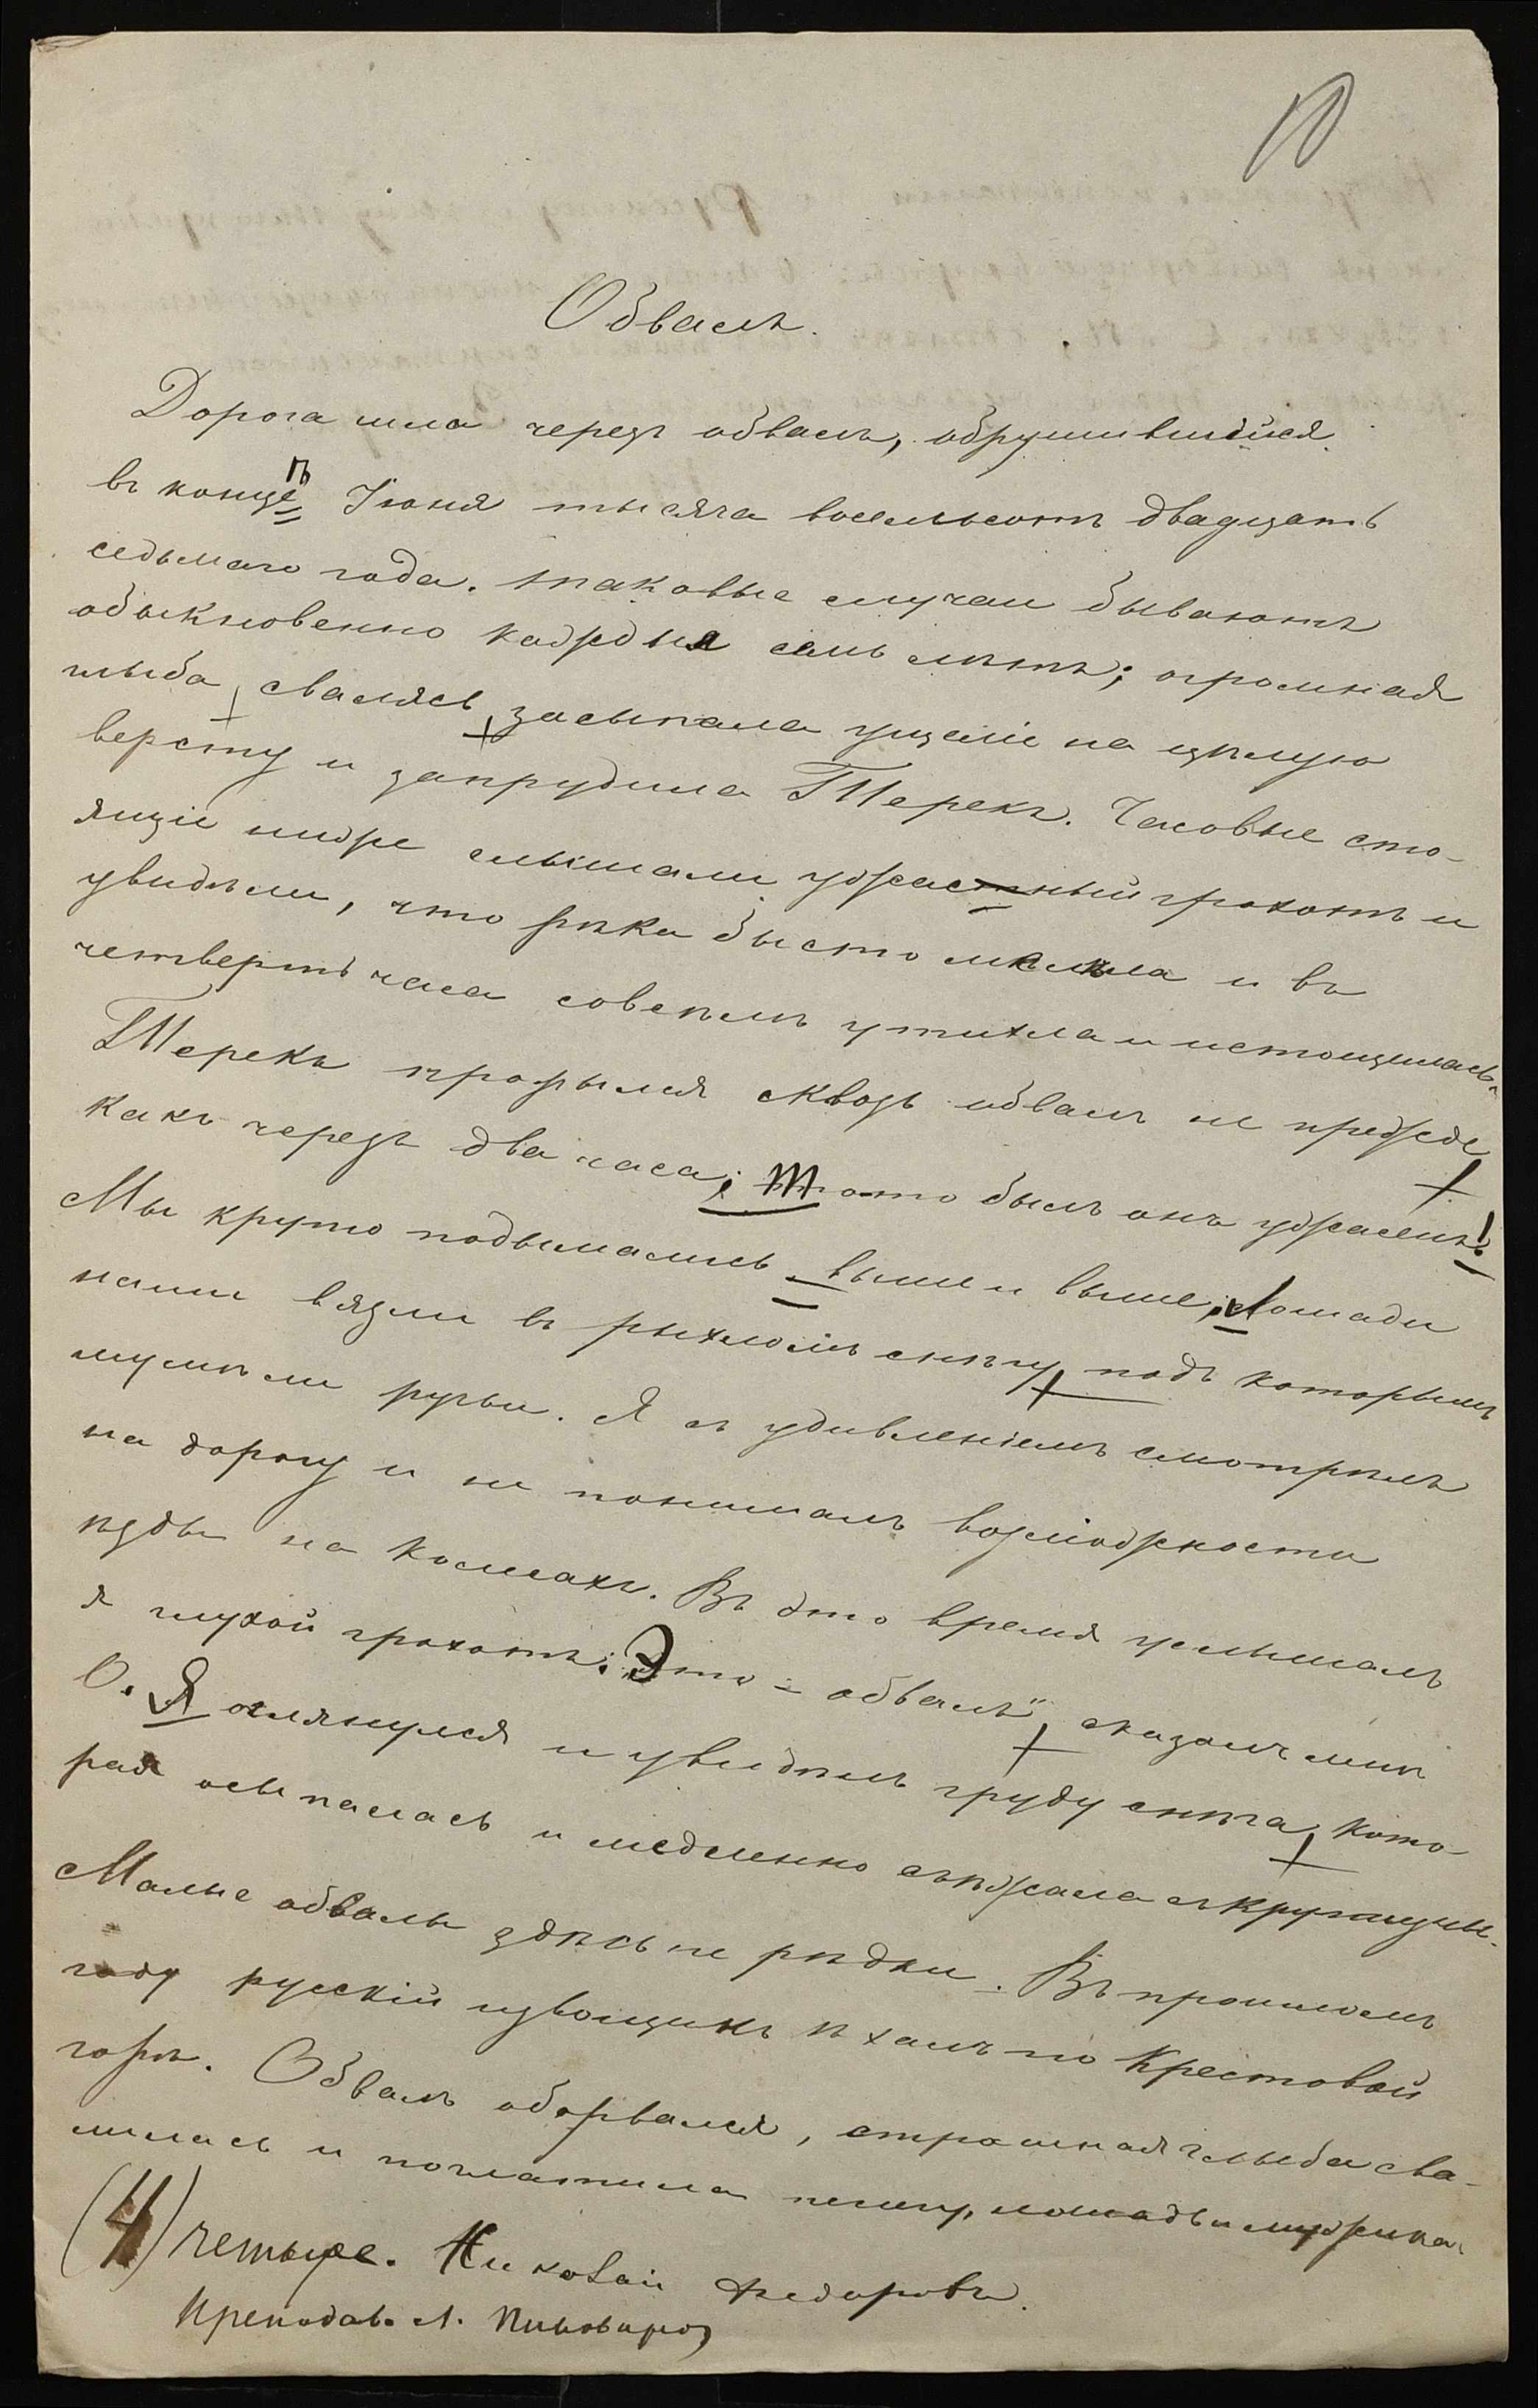 10
Обвалъ.
Дорога шла черезъ обвалъ, обрушившійся
въ концѣ Іюня тысяча восемьсотъ двадцать
седьмаго года. таковые случаи бываютъ
обыкновенно каждыя семь лѣтъ; огромная
глыба, свалясь, засыпала ущеліе на цѣлую
версту и запрудила Терекъ. Часовые сто-
ящіе ниже слышали ужасный грохотъ и
увидѣли, что рѣка быстро мелѣла и въ
четверть часа совсѣмъ утихла и истощилась.
Терекъ прорылся сквозь обвалъ не прежде,
какъ черезъ два часа; То-то былъ онъ ужасенъ!
Мы круто подымались выше и выше; Лошади
наши вязли въ рыхломъ снѣгу, подъ которымъ
шумѣли ручьи. Я съ удивленіемъ смотрѣлъ
на дорогу и не понималъ возможности
ѣзды на колесахъ. Въ это время услышалъ
я глухой грохотъ: „Это – обвалъ", сказалъ мнѣ
О. Я оглянулся и увидѣлъ груду снѣга, кото-
рая осыпалась и медленно съѣзжала съ крутизны.
Малые обвалы здѣсь не рѣдки. Въ прошломъ
году русскій извощикъ ѣхалъ по Крестовой
горѣ. Обвалъ оборвался, страшная глыба сва-
лилась и поглатила телегу, лошадь и мужика.
(4) четыре. Николай Федоровъ.
Преподав. Л. Пивоваров